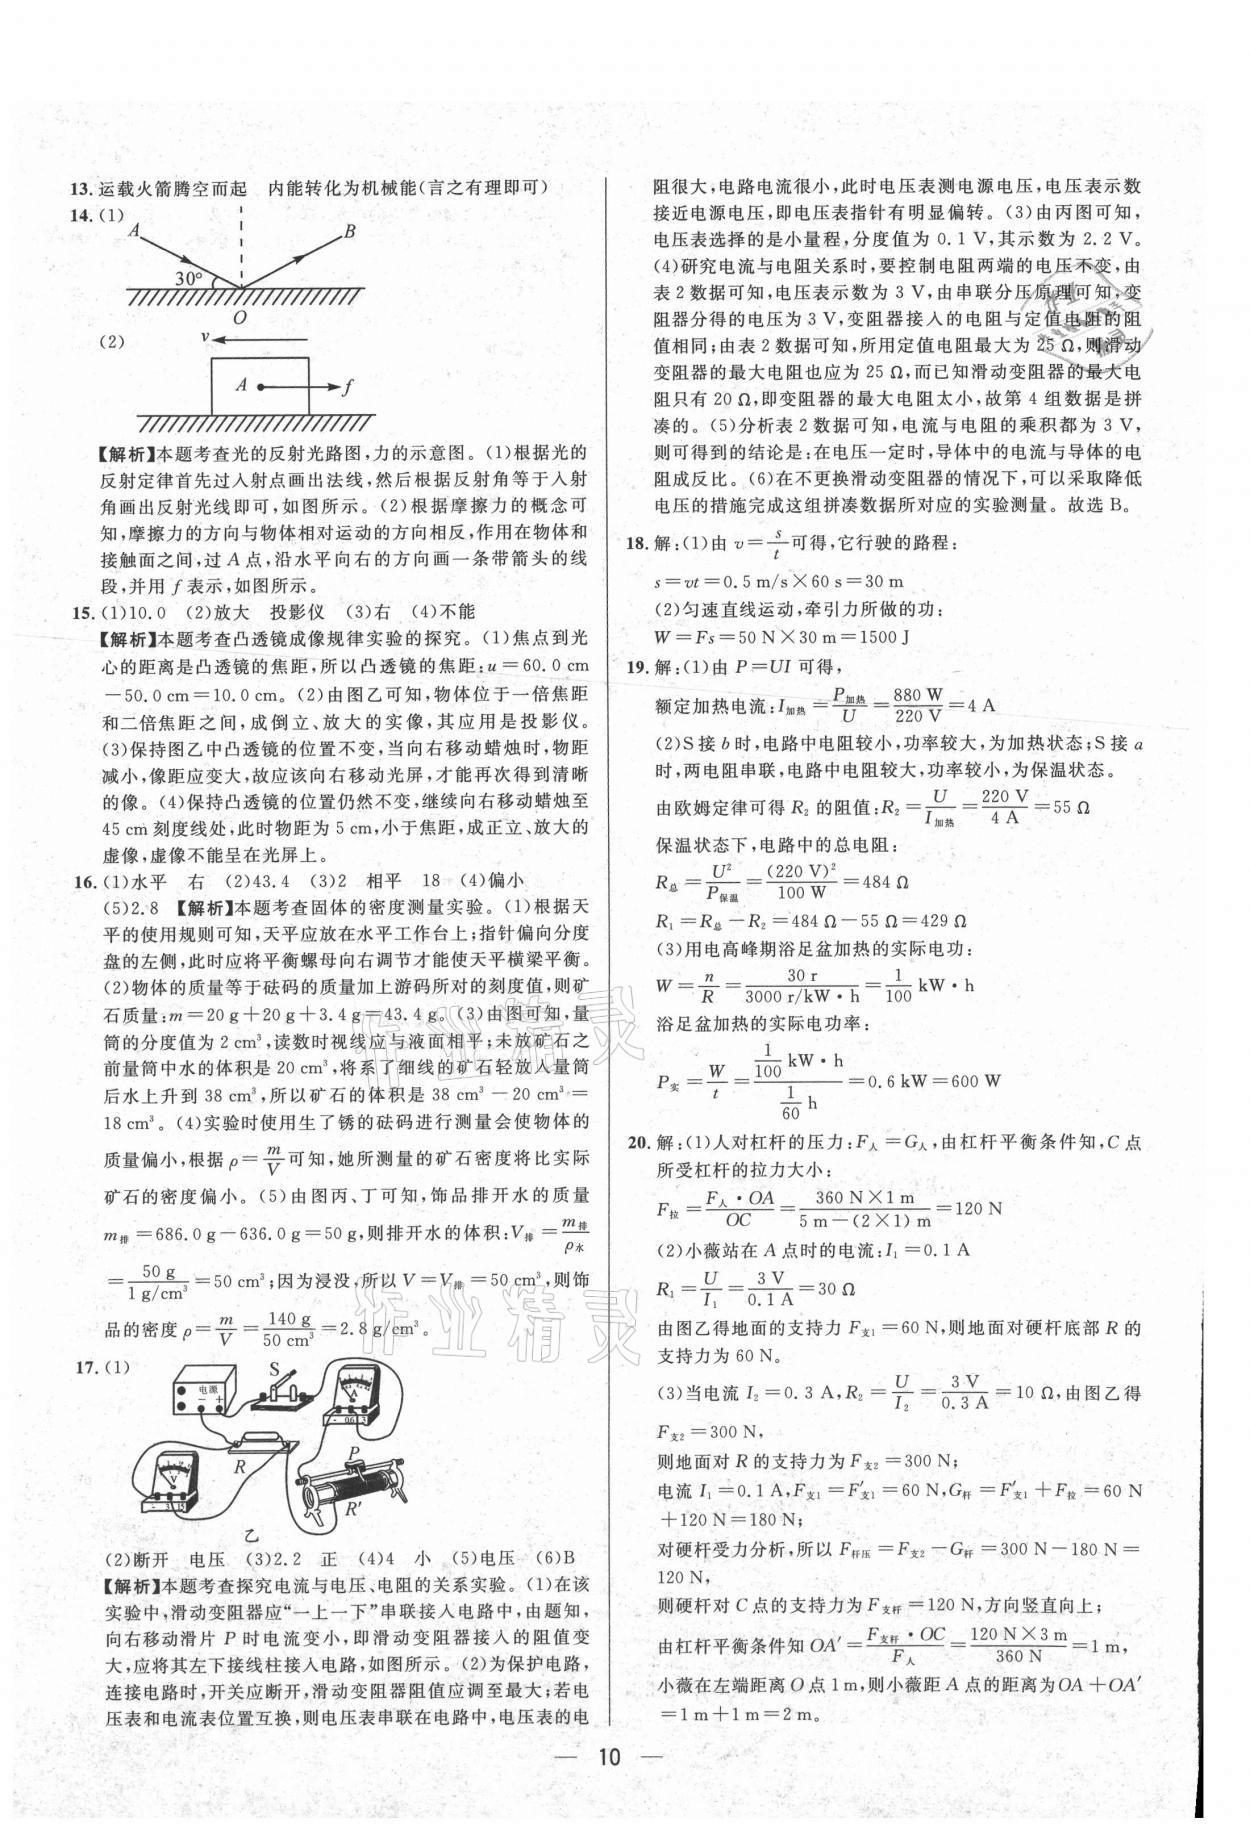 13. 运载火箭腾空而起　内能转化为机械能(言之有理即可)
14. (1)
A
B
30°
O
(2)
v
A
f
【解析】本题考查光的反射光路图,力的示意图。(1)根据光的
反射定律首先过入射点画出法线,然后根据反射角等于入射
角画出反射光线即可,如图所示。(2)根据摩擦力的概念可
知,摩擦力的方向与物体相对运动的方向相反,作用在物体和
接触面之间,过 A 点,沿水平向右的方向画一条带箭头的线
段,并用 f 表示,如图所示。
15. (1)10.0　(2)放大　投影仪　(3)右　(4)不能
【解析】本题考查凸透镜成像规律实验的探究。(1)焦点到光
心的距离是凸透镜的焦距,所以凸透镜的焦距:u=60.0 cm
－50.0 cm=10.0 cm。(2)由图乙可知,物体位于一倍焦距
和二倍焦距之间,成倒立、放大的实像,其应用是投影仪。
(3)保持图乙中凸透镜的位置不变,当向右移动蜡烛时,物距
减小,像距应变大,故应该向右移动光屏,才能再次得到清晰
的像。(4)保持凸透镜的位置仍然不变,继续向右移动蜡烛至
45 cm 刻度线处,此时物距为 5 cm,小于焦距,成正立、放大的
虚像,虚像不能呈在光屏上。
16. (1)水平　右　(2)43.4　(3)2　相平　18　(4)偏小
(5)2.8　【解析】本题考查固体的密度测量实验。(1)根据天
平的使用规则可知,天平应放在水平工作台上;指针偏向分度
盘的左侧,此时应将平衡螺母向右调节才能使天平横梁平衡。
(2)物体的质量等于砝码的质量加上游码所对的刻度值,则矿
石质量:m=20 g+20 g+3.4 g=43.4 g。(3)由图可知,量
筒的分度值为 2 cm³,读数时视线应与液面相平;未放矿石之
前量筒中水的体积是 20 cm³,将系了细线的矿石轻放入量筒
后水上升到 38 cm³,所以矿石的体积是 38 cm³－20 cm³=
18 cm³。(4)实验时使用生了锈的砝码进行测量会使物体的
质量偏小,根据 ρ=m/V 可知,她所测量的矿石密度将比实际
矿石的密度偏小。(5)由图丙、丁可知,饰品排开水的质量
m排=686.0 g－636.0 g=50 g,则排开水的体积:V排=m排/ρ水
=50 g/1 g/cm³=50 cm³;因为浸没,所以 V=V排=50 cm³,则饰
品的密度 ρ=m/V=140 g/50 cm³=2.8 g/cm³。
17. (1)
电源
－ ＋
S
A
－ 0.6 3
R
P
R′
V
－ 3 15
乙
(2)断开　电压　(3)2.2　正　(4)4　小　(5)电压　(6)B
【解析】本题考查探究电流与电压、电阻的关系实验。(1)在该
实验中,滑动变阻器应“一上一下”串联接入电路中,由题知,
向右移动滑片 P 时电流变小,即滑动变阻器接入的阻值变
大,应将其左下接线柱接入电路,如图所示。(2)为保护电路,
连接电路时,开关应断开,滑动变阻器阻值应调至最大;若电
压表和电流表位置互换,则电压表串联在电路中,电压表的电
阻很大,电路电流很小,此时电压表测电源电压,电压表示数
接近电源电压,即电压表指针有明显偏转。(3)由丙图可知,
电压表选择的是小量程,分度值为 0.1 V,其示数为 2.2 V。
(4)研究电流与电阻关系时,要控制电阻两端的电压不变,由
表 2 数据可知,电压表示数为 3 V,由串联分压原理可知,变
阻器分得的电压为 3 V,变阻器接入的电阻与定值电阻的阻
值相同;由表 2 数据可知,所用定值电阻最大为 25 Ω,则滑动
变阻器的最大电阻也应为 25 Ω,而已知滑动变阻器的最大电
阻只有 20 Ω,即变阻器的最大电阻太小,故第 4 组数据是拼
凑的。(5)分析表 2 数据可知,电流与电阻的乘积都为 3 V,
则可得到的结论是:在电压一定时,导体中的电流与导体的电
阻成反比。(6)在不更换滑动变阻器的情况下,可以采取降低
电压的措施完成这组拼凑数据所对应的实验测量。故选 B。
18. 解:(1)由 v=s/t 可得,它行驶的路程:
s=vt=0.5 m/s×60 s=30 m
(2)匀速直线运动,牵引力所做的功:
W=Fs=50 N×30 m=1500 J
19. 解:(1)由 P=UI 可得,
额定加热电流:I加热=P加热/U=880 W/220 V=4 A
(2)S 接 b 时,电路中电阻较小,功率较大,为加热状态;S 接 a
时,两电阻串联,电路中电阻较大,功率较小,为保温状态。
由欧姆定律可得 R₂ 的阻值:R₂=U/I加热=220 V/4 A=55 Ω
保温状态下,电路中的总电阻:
R总=U²/P保温=(220 V)²/100 W=484 Ω
R₁=R总－R₂=484 Ω－55 Ω=429 Ω
(3)用电高峰期浴足盆加热的实际电功:
W=n/R=30 r/3000 r/kW·h=1/100 kW·h
浴足盆加热的实际电功率:
P实=W/t=(1/100 kW·h)/(1/60 h)=0.6 kW=600 W
20. 解:(1)人对杠杆的压力:F人=G人,由杠杆平衡条件知,C 点
所受杠杆的拉力大小:
F拉=F人·OA/OC=360 N×1 m/5 m－(2×1) m=120 N
(2)小薇站在 A 点时的电流:I₁=0.1 A
R₁=U/I₁=3 V/0.1 A=30 Ω
由图乙得地面的支持力 F支1=60 N,则地面对硬杆底部 R 的
支持力为 60 N。
(3)当电流 I₂=0.3 A,R₂=U/I₂=3 V/0.3 A=10 Ω,由图乙得
F支2=300 N,
则地面对 R 的支持力为 F支2=300 N;
电流 I₁=0.1 A,F支1=F′支1=60 N,G杆=F′支1+F拉=60 N
+120 N=180 N;
对硬杆受力分析,所以 F杆压=F支2－G杆=300 N－180 N=
120 N,
则硬杆对 C 点的支持力为 F支杆=120 N,方向竖直向上;
由杠杆平衡条件知 OA′=F支杆·OC/F人=120 N×3 m/360 N=1 m,
小薇在左端距离 O 点 1 m,则小薇距 A 点的距离为 OA+OA′
=1 m+1 m=2 m。
— 10 —
作业精灵
作业精灵
作业精灵